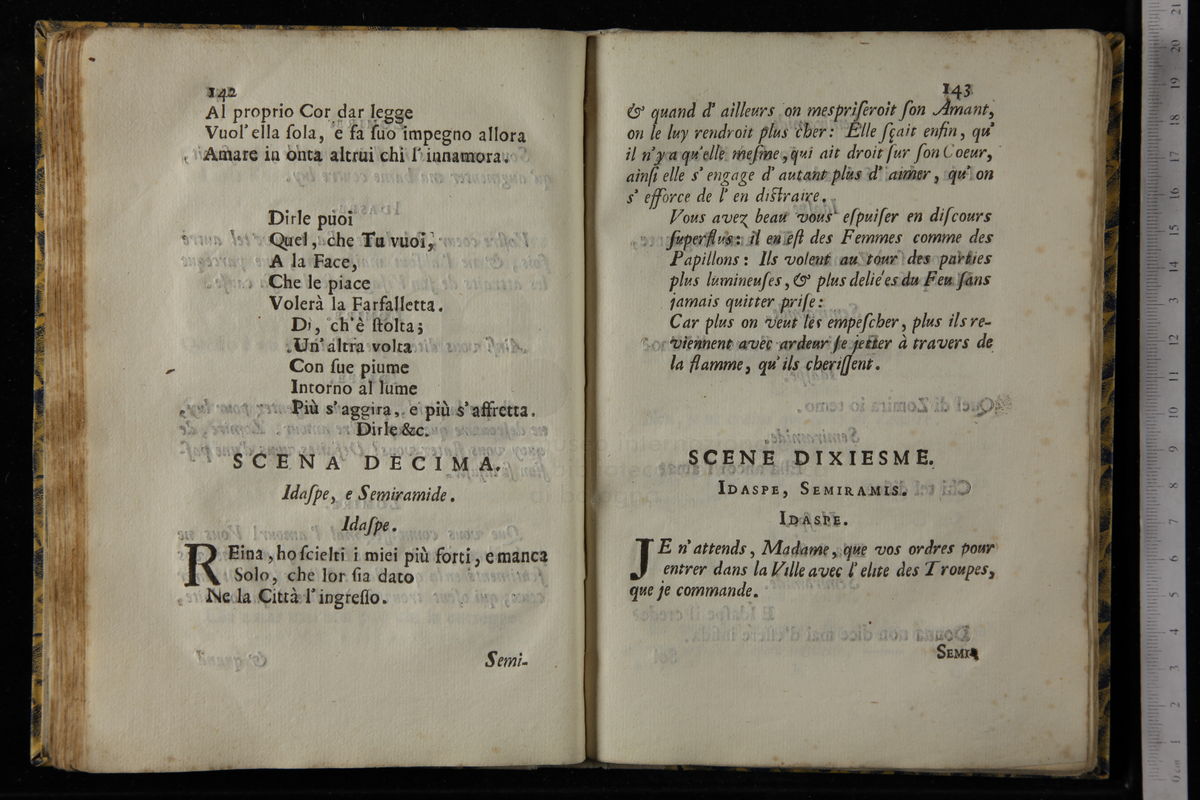 142
Al proprio Cor dar legge
Vuol' ella ſola, e fa ſuo impegno allora
Amare in onta altrui chi l' innamora.
Dirle puoi
Quel, che Tu vuoi,
A la Face,
Che le piace
Volerà la Farfalletta.
Di, ch'è ſtolta;
Un' altra volta
Con ſue piume
Intorno al lume
Più s'aggira, e più s'affretta.
Dirle &c.
SCENA DECIMA.
Idaſpe, e Semiramide.
Idaſpe.
REina, ho ſcielti i miei più forti, e manca
Solo, che lor ſia dato
Ne la Città l'ingreſſo.
Semi-
143
& quand d' ailleurs on mespriſeroit ſon Amant,
on le luy rendroit plus cher: Elle ſçait enfin, qu'
il n'y a qu'elle meſme, qui ait droit ſur ſon Coeur,
ainſi elle s' engage d' autant plus d' aimer, qu' on
s' efforce de l' en diſtraire.
Vous avez beau vous eſpuiſer en diſcours
ſuperflus: il en eſt des Femmes comme des
Papillons: Ils volent au tour des parties
plus lumineuſes, & plus deliées du Feu ſans
jamais quitter priſe:
Car plus on veut les empeſcher, plus ils re-
viennent avec ardeur ſe jetter à travers de
la flamme, qu' ils cheriſſent.
SCENE DIXIESME.
IDASPE, SEMIRAMIS.
IDASPE.
JE n'attends, Madame, que vos ordres pour
entrer dans la Ville avec l' elite des Troupes,
que je commande.
SEMI-